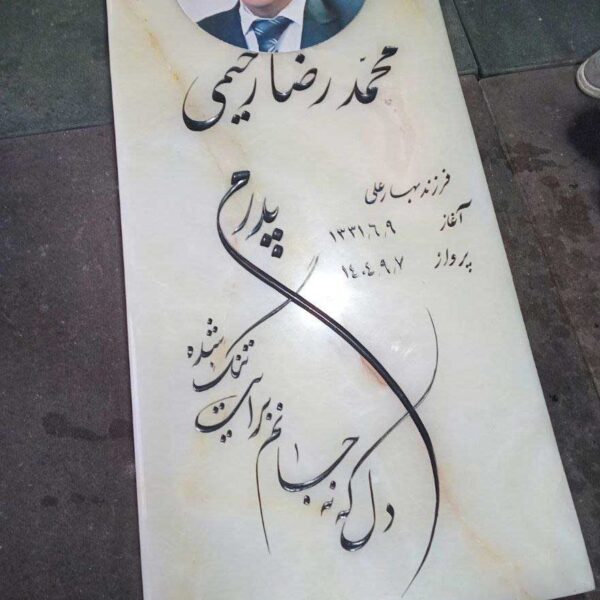 محمّد رضا رحیمی
فرزند بهار علی
آغاز ۱۳۳۱/۶/۹
پرواز ۱۴۰۴/۹/۷
پدرم
دل که نه جانم برایت تنگ شده